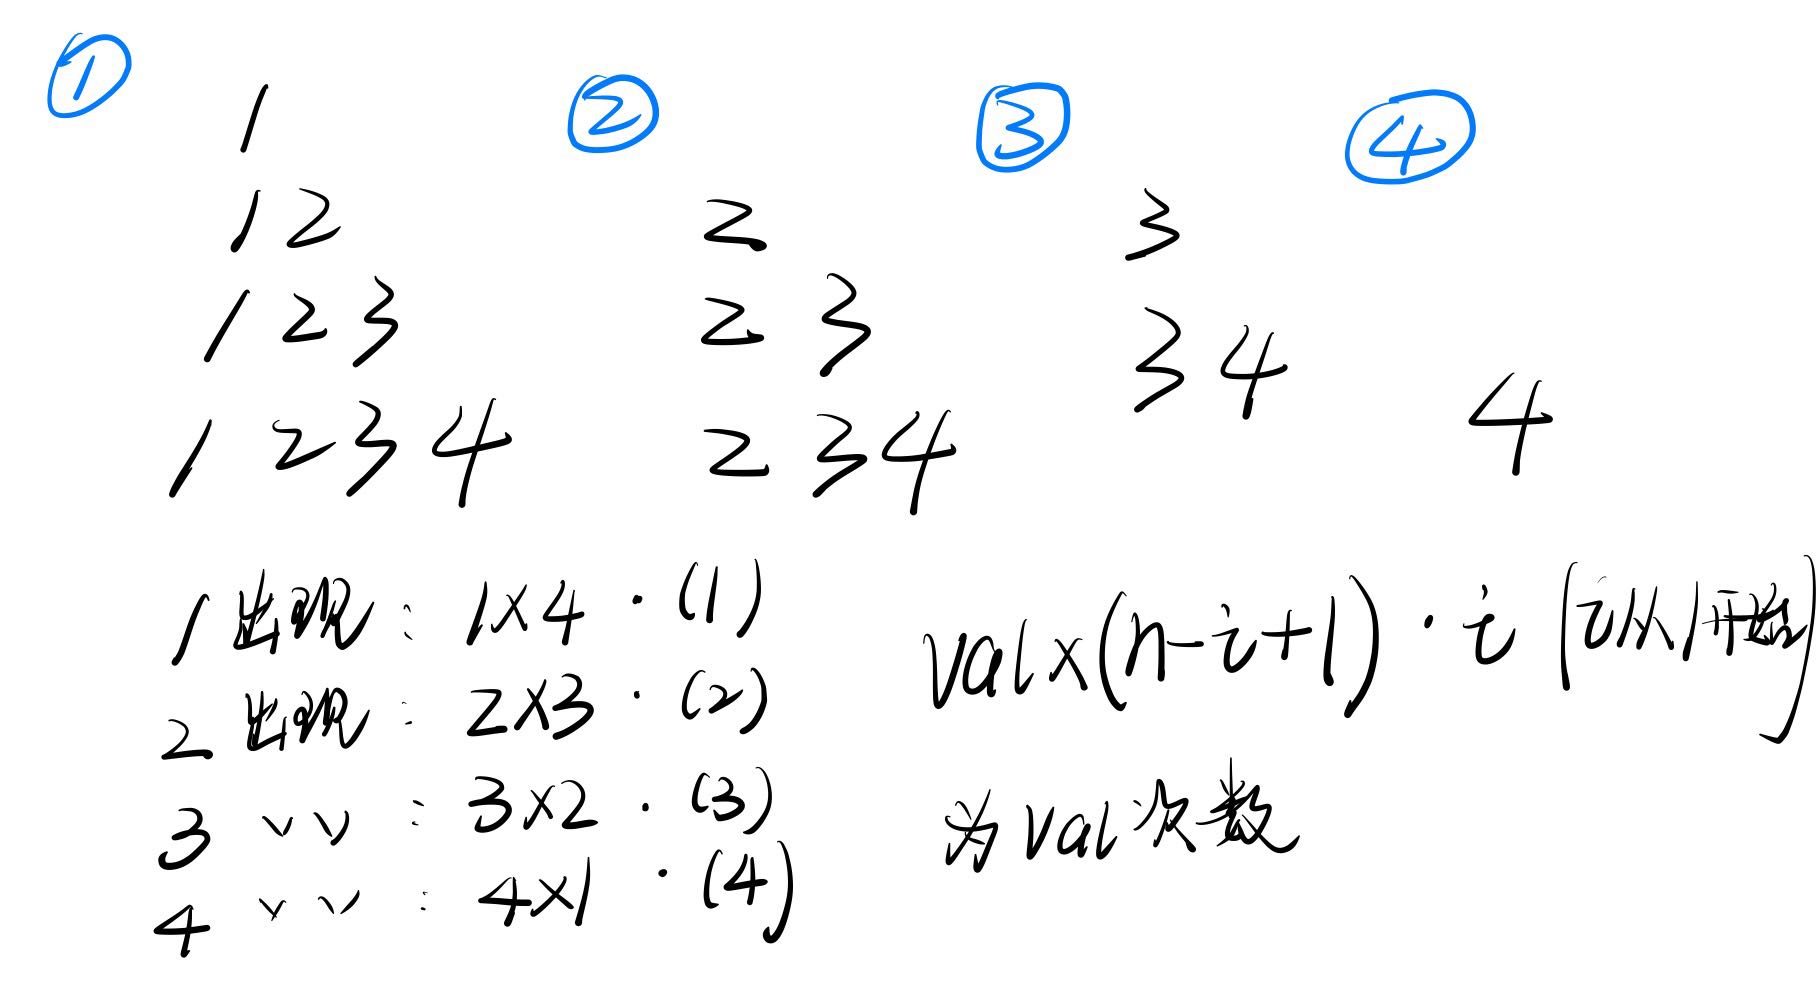 ①
1
②
③
④
1 2
2
3
1 2 3
2 3
3 4
1 2 3 4
2 3 4
4
1出现: 1×4 · (1)
2出现: 2×3 · (2)
3 〃 : 3×2 · (3)
4 〃 : 4×1 · (4)
val×(n-i+1) · i (i从1开始)
为val次数